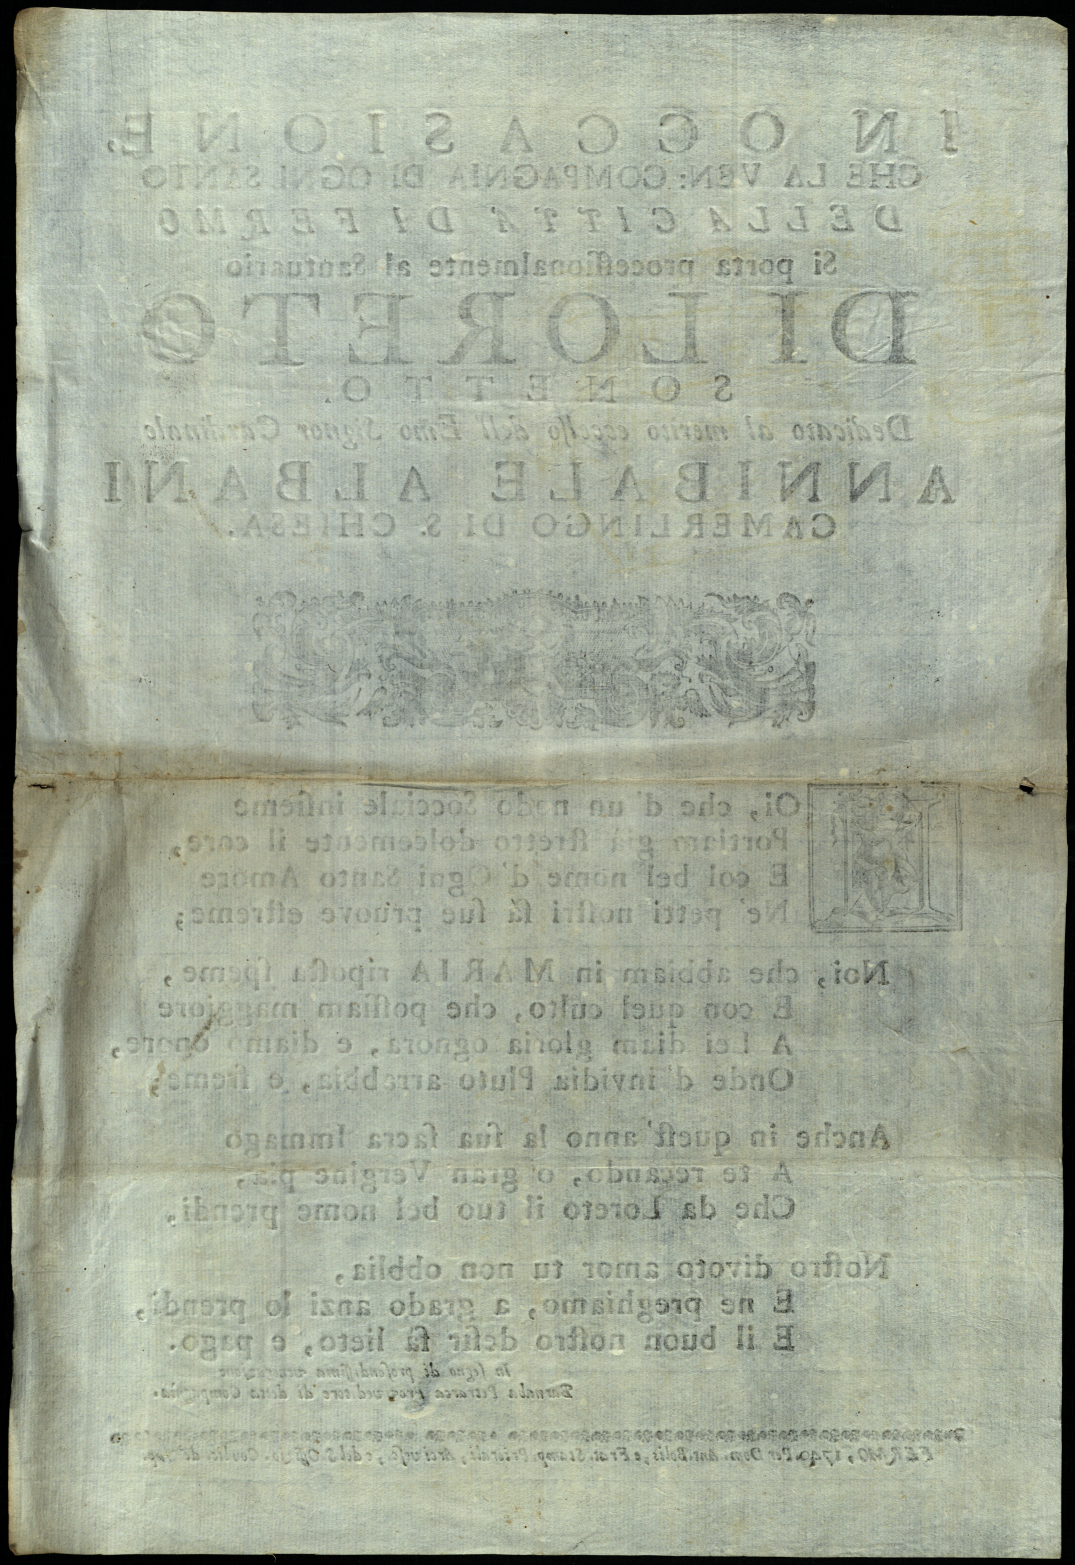 IN OCCASIONE,
CHE LA VEN: COMPAGNIA DI OGNI SANTO
DELLA CITTÀ DI FERMO
Si porta processionalmente al Santuario
DI LORETO
SONETTO.
Dedicato al merito eccelso dell' Emo Signor Cardinale
ANNIBALE ALBANI
CAMERLINGO DI S. CHIESA.
NOi, che d'un nodo Socciale insieme
Portiam già stretto dolcemente il core,
E col bel nome d'Ogni Santo Amore
Ne' petti nostri fà sue pruove estreme;
Noi, che abbiam in MARIA riposta speme,
E con quel culto, che possiam maggiore
A Lei diam gloria ognora, e diamo onore,
Onde d'invidia Pluto arrabbia, e freme;
Anche in quest' anno la sua sacra Immago
A te recando, o gran Vergine pia,
Che da Loreto il tuo bel nome prendi,
Nostro divoto amor tu non obblia,
E ne preghiamo, a grado anzi lo prendi,
E il buon nostro desir fà lieto, e pago.
In segno di profondissima venerazione
Barnaba Petrarca Proveditore di detta Compagnia.
FERMO, 1740. Per Dom. Ant. Bolis, e Frat. Stamp. Priorali, Arcivesc., e del S. Offizio. Con lic. de' Sup.